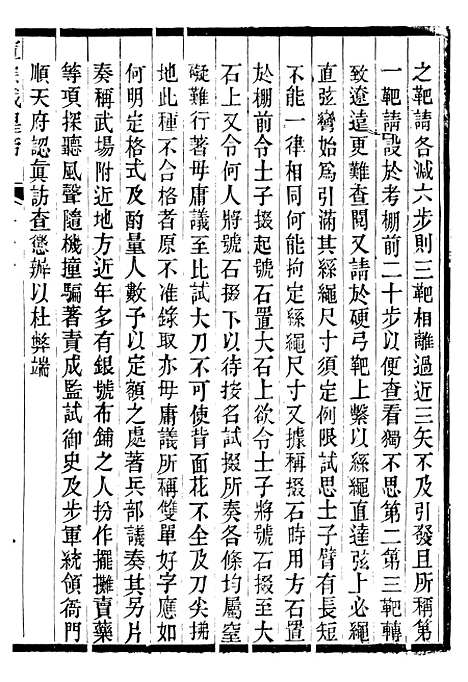 之靶請各減六步則三靶相離過近三矢不及引發且所稱第
一靶請設於考棚前二十步以便查看獨不思第二第三靶轉
致遼遠更難查閱又請於硬弓靶上繫以絲繩直達弦上必繩
直弦彎始爲引滿其絲繩尺寸須定例限試思士子臂有長短
不能一律相等何以轉能拘定絲繩尺寸又據稱掇石時用方石
於棚前令士子掇起號石置大石上欲令士子將號石掇至大
石上又令何人將號石掇下以待按名試掇所奏各條均屬窒
礙難行著毋庸議至比試大刀不可使背面花不全及刀尖拂
地此種不合格者原不予准錄取亦毋庸議所稱雙單好字應如
何明定格式及酌量人數予以定額之處著兵部議奏其另片
奏稱武場附近地方近年多有銀號布鋪之人扮作擺攤賣藥
等項探聽風聲隨機撞騙著責成監試御史及步軍統領衙門
順天府認眞訪查懲辦以杜弊端